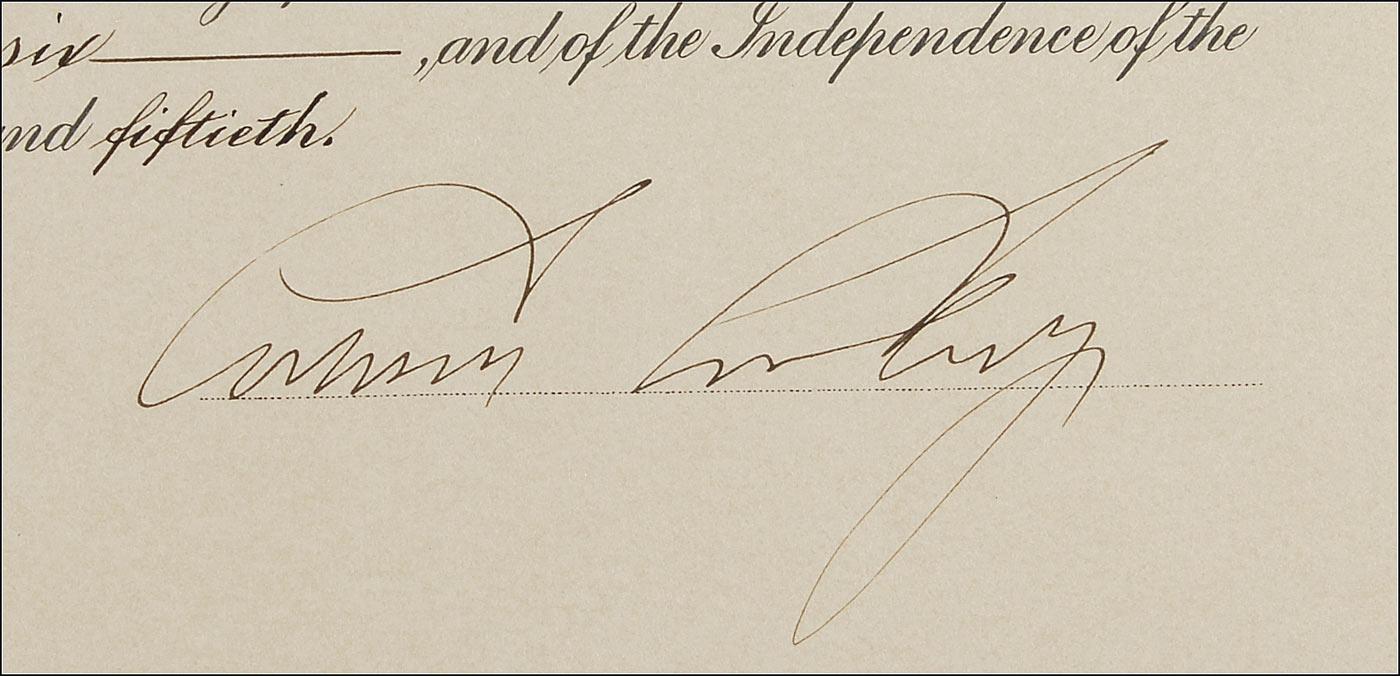 six , and of the Independence of the
and fiftieth.
Calvin Coolidge